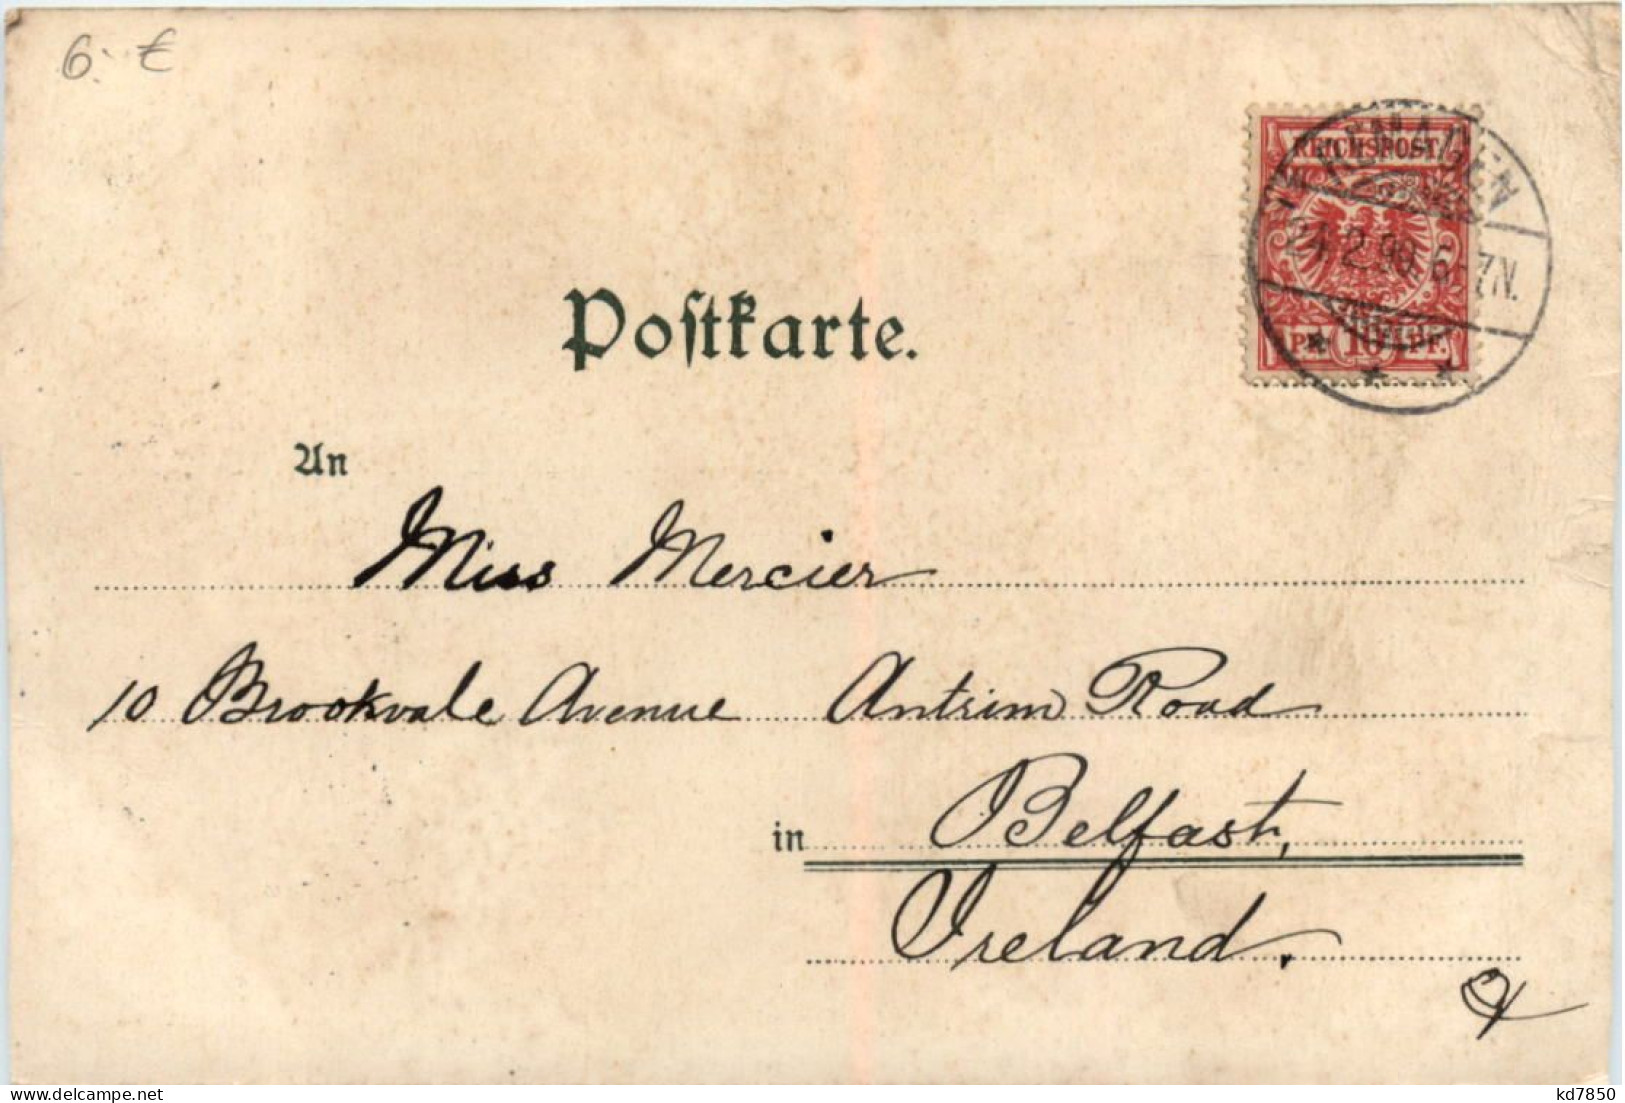 6.- €
REMAGEN
REICHSPOST
6-7N.
PF. 10 PF.
Poſtkarte.
An
Miss Mercier
10 Brookvale Avenue Antrim Road
in Belfast,
Ireland.
www.delcampe.net
kd7850